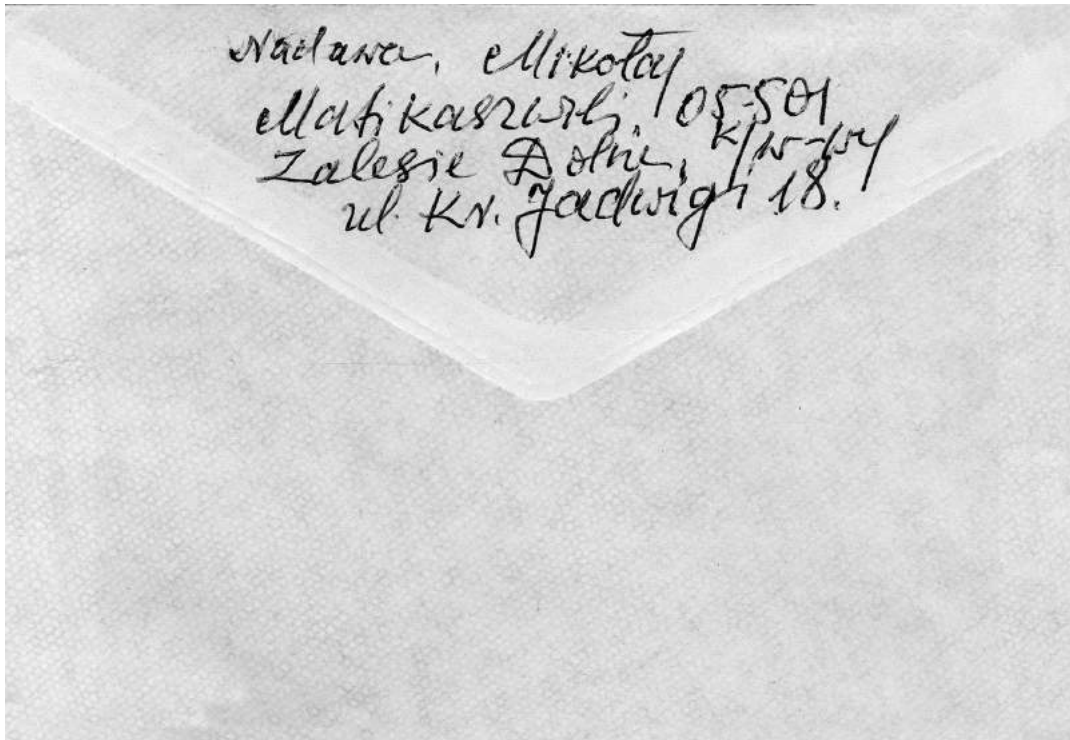 Nadawca, Mikołaj
Matikaszwili, 05-501
Zalesie Dolne, k/W-wy
ul. Kr. Jadwigi 18.